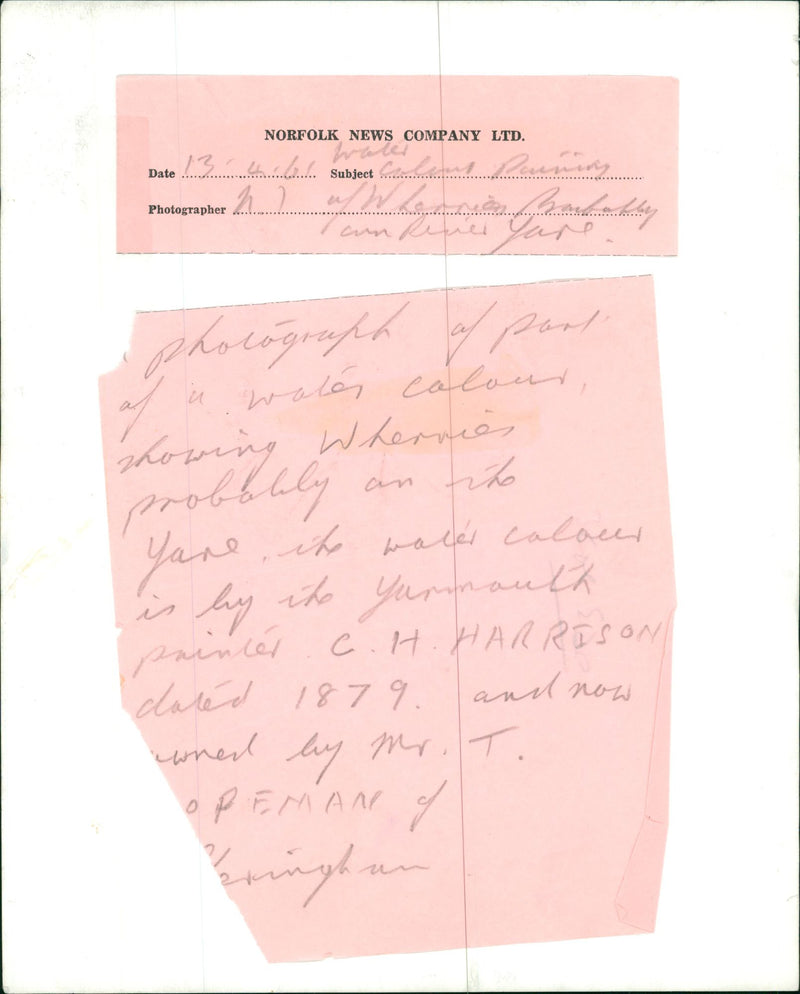 NORFOLK NEWS COMPANY LTD.
water
Date 13.4.61 Subject colour Painting
Photographer of Wherries Probably
on River Yare.
photograph of part
of a water colour,
showing Wherries
probably on the
Yare. the water colour
is by the Yarmouth
painter C. H. HARRISON
dated 1879. and now
owned by Mr. T.
OPEMAN of
eringham